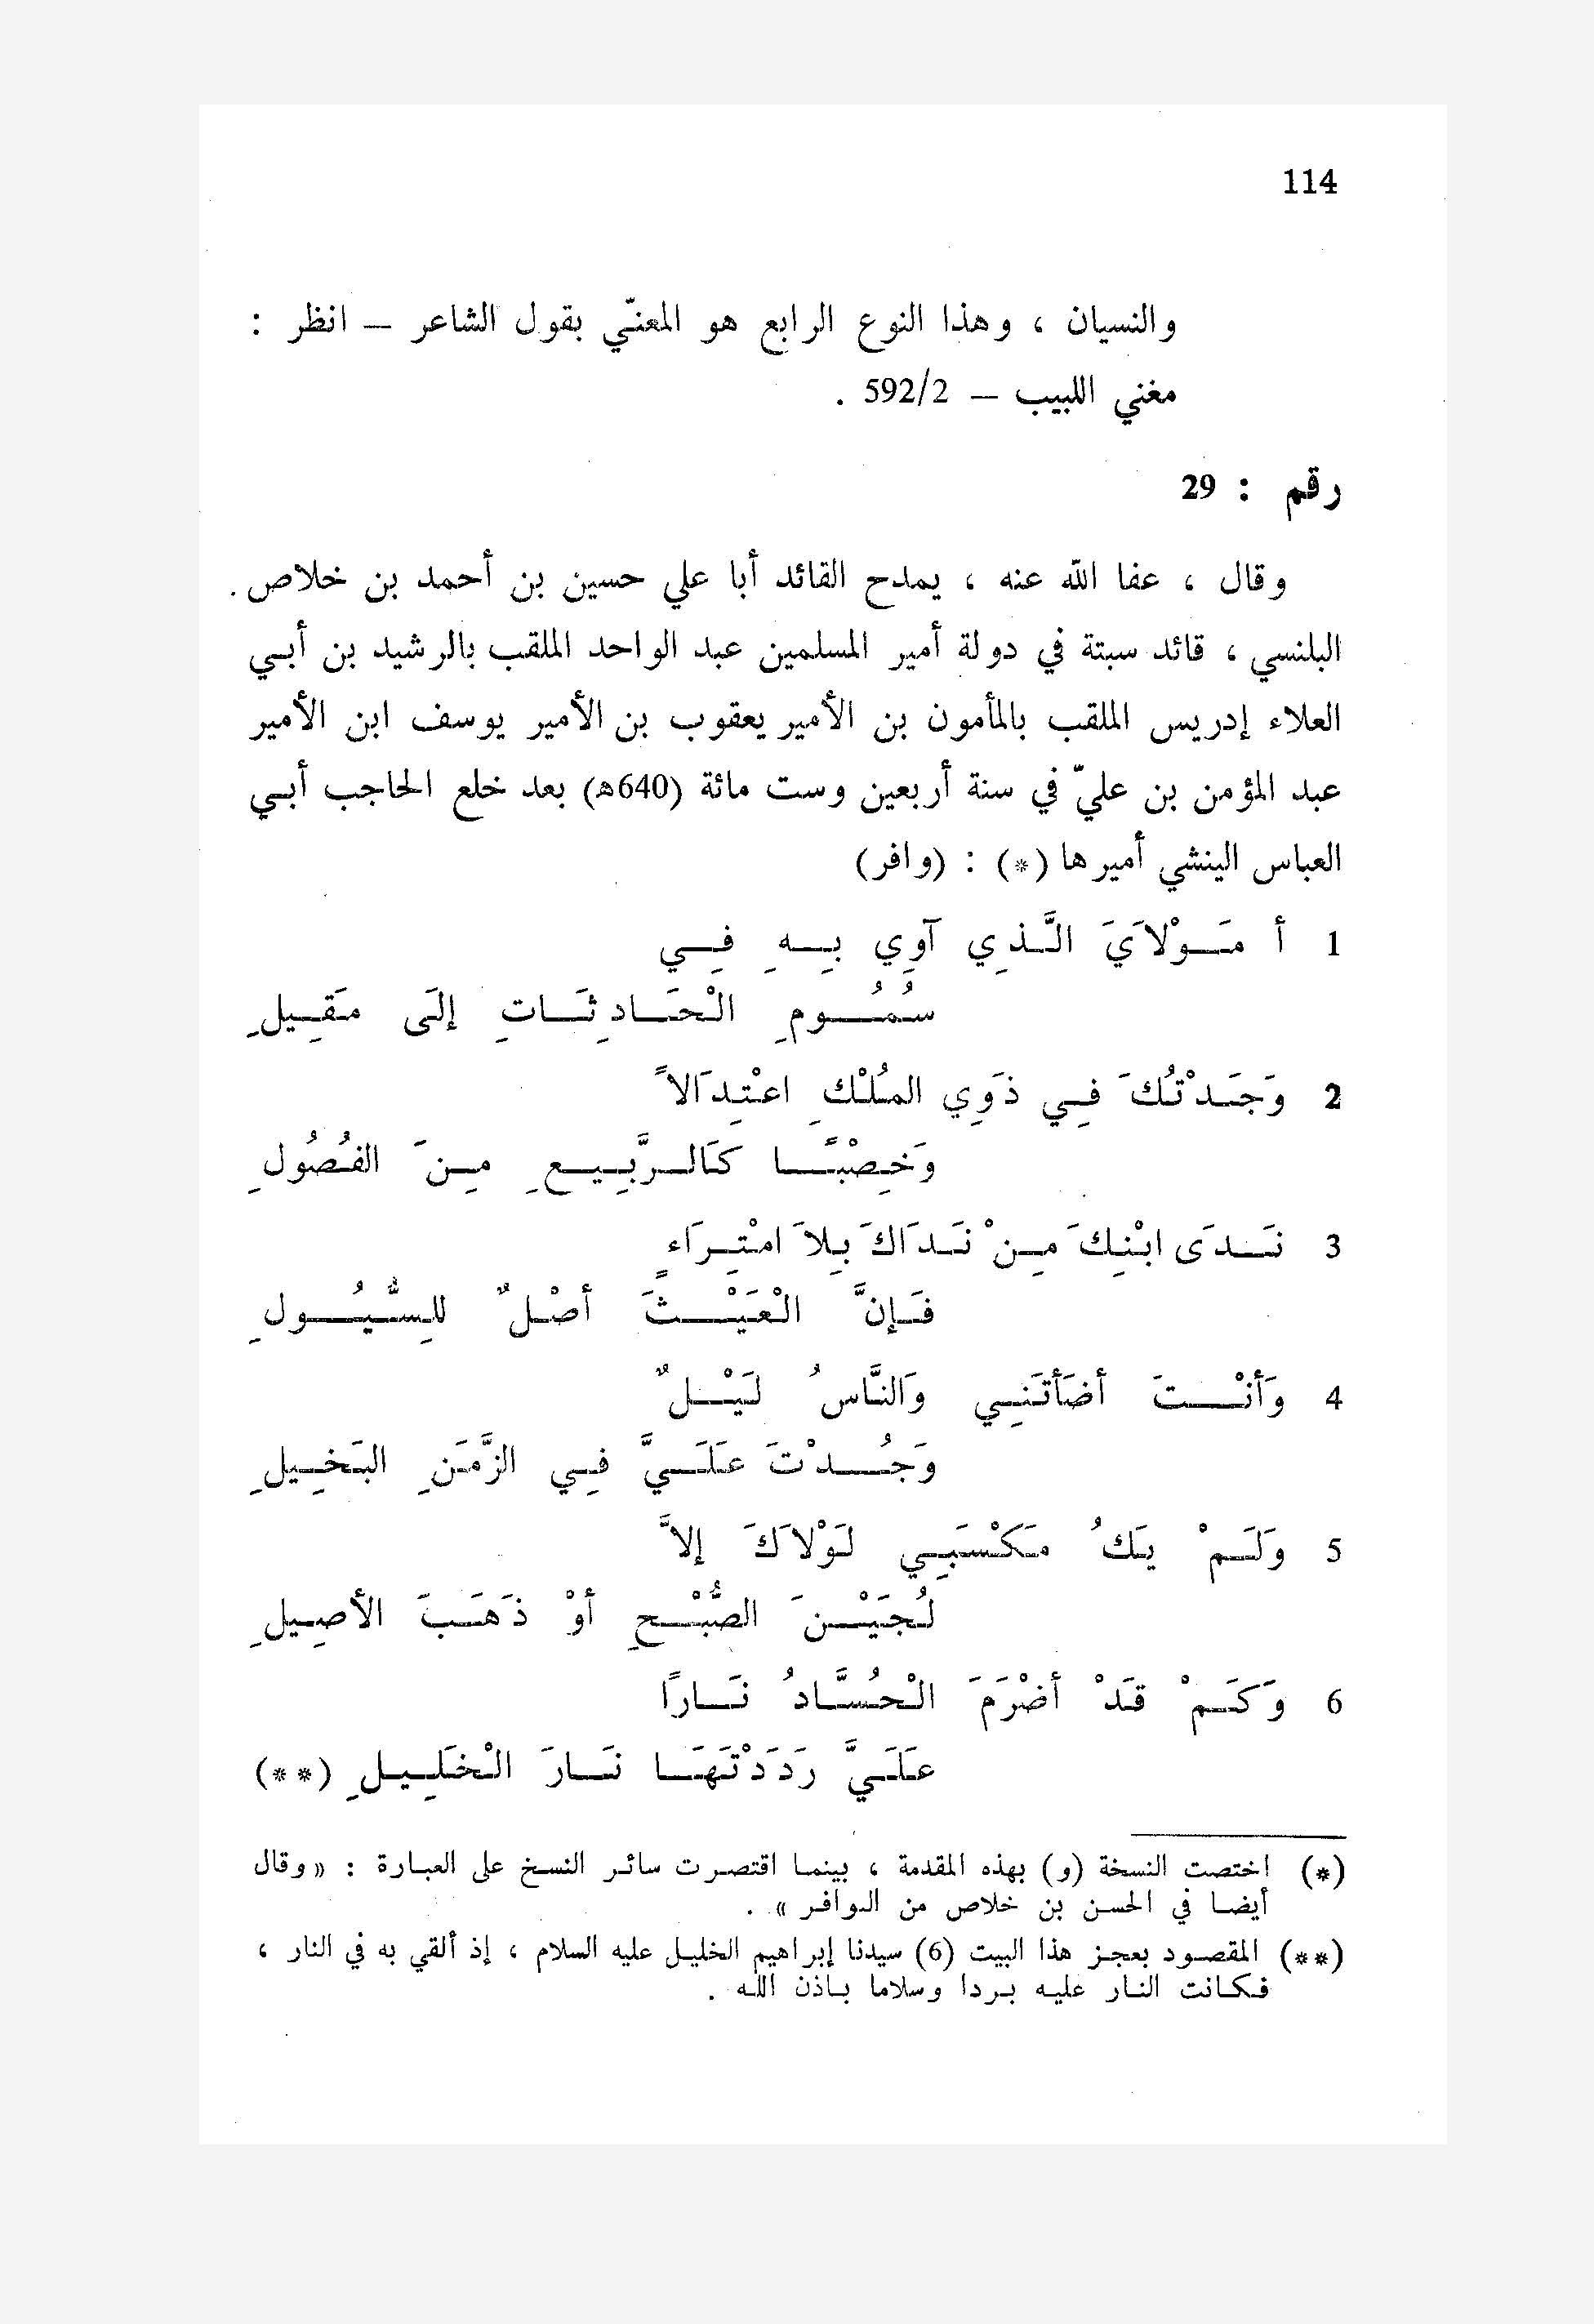 114
والنسيان ، وهذا النوع الرابع هو المعنّي بقول الشاعر — انظر :
مغني اللبيب — 592/2 .
رقم : 29
وقال ، عفا الله عنه ، يمدح القائد أبا علي حسين بن أحمد بن خلاص .
البلنسي ، قائد سبتة في دولة أمير المسلمين عبد الواحد الملقب بالرشيد بن أبي
العلاء إدريس الملقب بالمأمون بن الأمير يعقوب بن الأمير يوسف ابن الأمير
عبد المؤمن بن عليّ في سنة أربعين وست مائة (640ه) بعد خلع الحاجب أبي
العباس الينشي أميرها (*) : (وافر)
1 أ مَوْلاَيَ الَّذِي آوِي بِهِ فِي
سُمُومِ الْحَادِثَاتِ إلَى مَقِيلِ
2 وَجَدْتُكَ فِي ذَوِي المُلْكِ اعْتِدَالاً
وَخِصْبًا كَالرَّبِيعِ مِنَ الفُصُولِ
3 نَدَى ابْنِكَ مِنْ نَدَاكَ بِلاَ امْتِرَاءٍ
فَإنَّ الْغَيْثَ أصْلٌ لِلسُّيُولِ
4 وَأنْتَ أضَأتَنِي وَالنَّاسُ لَيْلٌ
وَجُدْتَ عَلَيَّ فِي الزَّمَنِ البَخِيلِ
5 وَلَمْ يَكُ مَكْسَبِي لَوْلاَكَ إلاَّ
لُجَيْنَ الصُّبْحِ أوْ ذَهَبَ الأصِيلِ
6 وَكَمْ قَدْ أضْرَمَ الْحُسَّادُ نَارًا
عَلَيَّ رَدَدْتَهَا نَارَ الْخَلِيلِ (**)
(*) اختصت النسخة (و) بهذه المقدمة ، بينما اقتصرت سائر النسخ على العبارة : «وقال
أيضا في الحسن بن خلاص من الوافر » .
(**) المقصود بعجز هذا البيت (6) سيدنا إبراهيم الخليل عليه السلام ، إذ ألقي به في النار ،
فكانت النار عليه بردا وسلاما باذن الله .